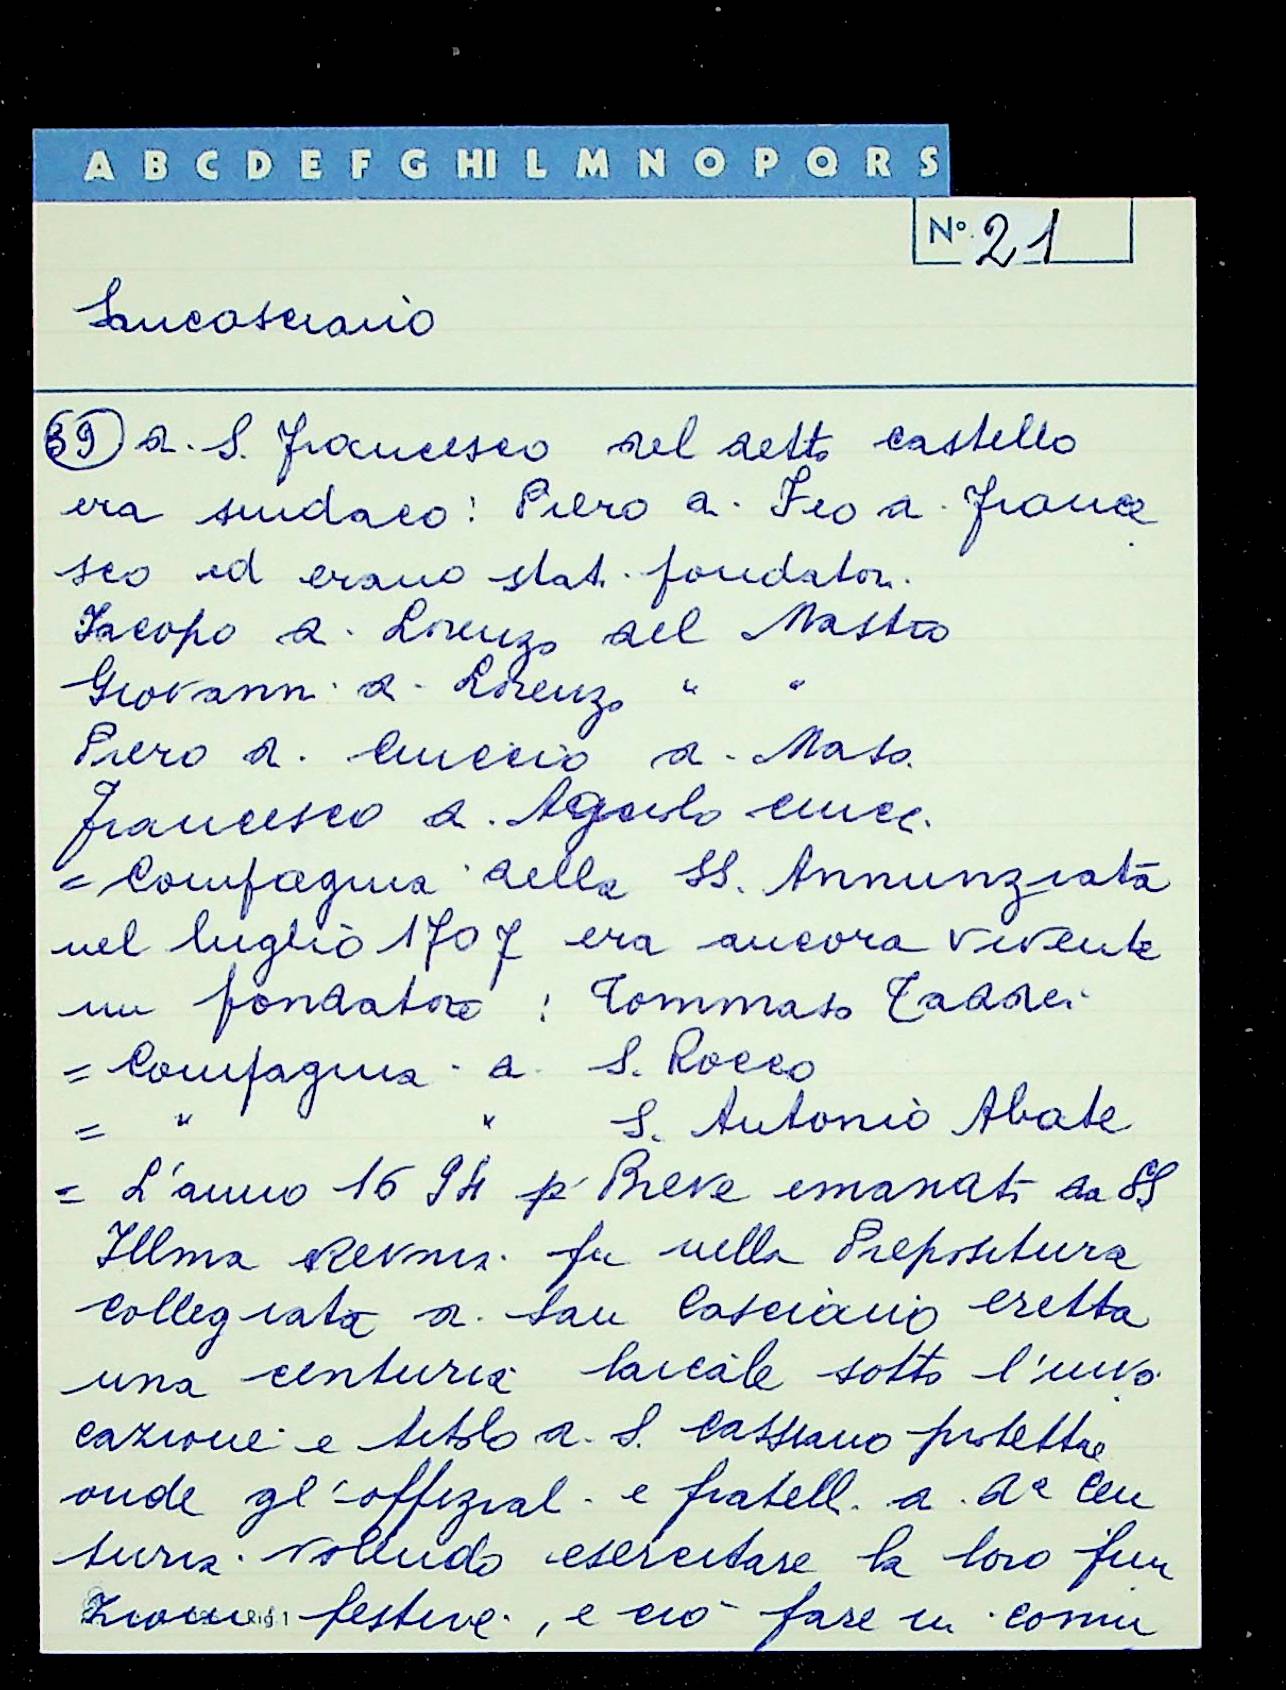 A B C D E F G HI L M N O P Q R S
N° 21
Sancasciano
39 di S. Francesco nel detto castello
era sindaco: Piero di Feo di France
sco ed erano stati fondatori
Iacopo di Lorenzo del Mastro
Giovanni di Lorenzo " "
Piero di Cinccio di Maso
Francesco di Agnolo Cincci
= Compagnia della SS. Annunziata
nel luglio 1707 era ancora vivente
un fondatore : Tommaso Taddei
= Compagnia di S. Rocco
= " " S. Antonio Abate
= L'anno 1694 p Breve emanato da SS
Illma Revma fu nella Prepositura
collegiata di San Casciano eretta
una centuria laicale sotto l'invo
cazione e titolo di S. Cassiano protettre
onde gl'offiziali e fratelli di da Cen
turia volendo esercitare la loro fun
zioni festive, e ciò fare in comu